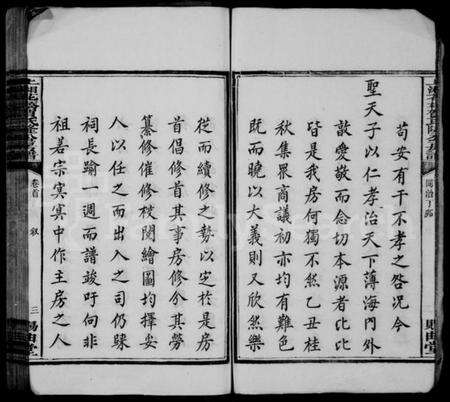 苟安有干不孝之咎況今
聖天子以仁孝治天下薄海內外
敦愛敬而念切本源者比比
皆是我房何獨不然乙丑桂
秋集眾商議初亦均有難色
既而曉以大義則又欣然樂
從而續修之勢以定於是房
首倡修其事房修分其勞
纂修催修校閱繪圖均擇妥
人以任之而出入之司仍隸
祠長踰一週而譜竣吁向非
祖若宗冥冥中作主房之人
卷首
叙
三